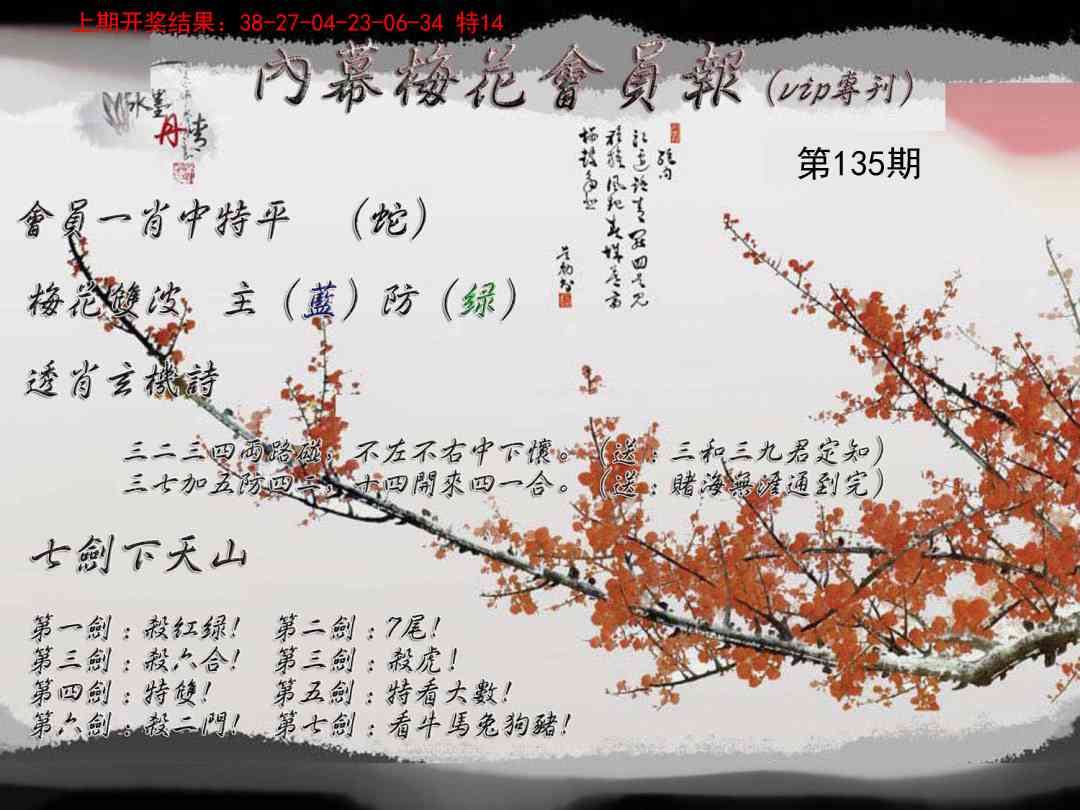 上期开奖结果：38-27-04-23-06-34 特14
內幕梅花會員報（vip專刊）
水墨
丹青
第135期
會員一肖中特平 （蛇）
梅花雙波 主（藍）防（绿）
透肖玄機詩
三二三四両路碰，不左不右中下懷。（送：三和三九君定知）
三七加五防四二，十四開來四一合。（送：賭海無涯通到完）
七劍下天山
第一劍：殺红绿！ 第二劍：7尾！
第三劍：殺六合！ 第三劍：殺虎！
第四劍：特雙！ 第五劍：特看大數！
第六劍：殺二門！ 第七劍：看牛馬兔狗豬！